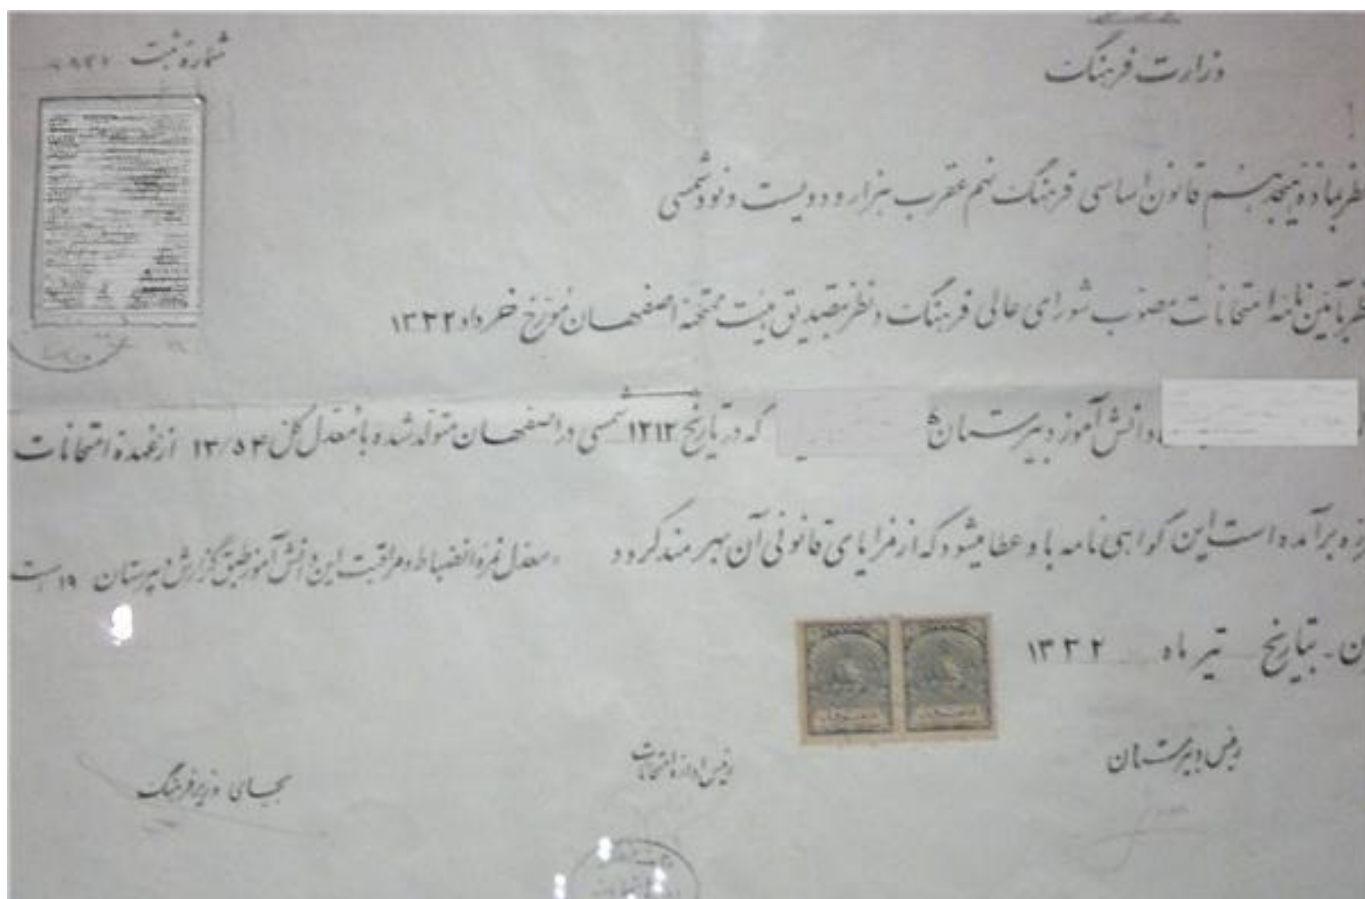 وزارت فرهنگ
شماره ثبت
نظر بماده هیجدهم قانون اساسی فرهنگ نهم عقرب هزار و دویست و نود شمسی
نظر بآئین نامه امتحانات مصوب شورای عالی فرهنگ و نظر بتصدیق هیئت ممتحنه اصفهان مورخ خرداد ۱۳۳۲
دانش آموز دبیرستان که در تاریخ ۱۳۱۲ شمسی در اصفهان متولد شده با معدل کل ۱۳/۵۴ از عهده امتحانات
برآمده است این گواهی نامه باو عطا میشود که از مزایای قانونی آن بهره مند گردد معدل نمره انضباط و مراقبت این دانش آموز طبق گزارش دبیرستان ۱۹ است
بتاریخ تیر ماه ۱۳۳۲
رئیس دبیرستان
رئیس اداره امتحانات
بجای وزیر فرهنگ